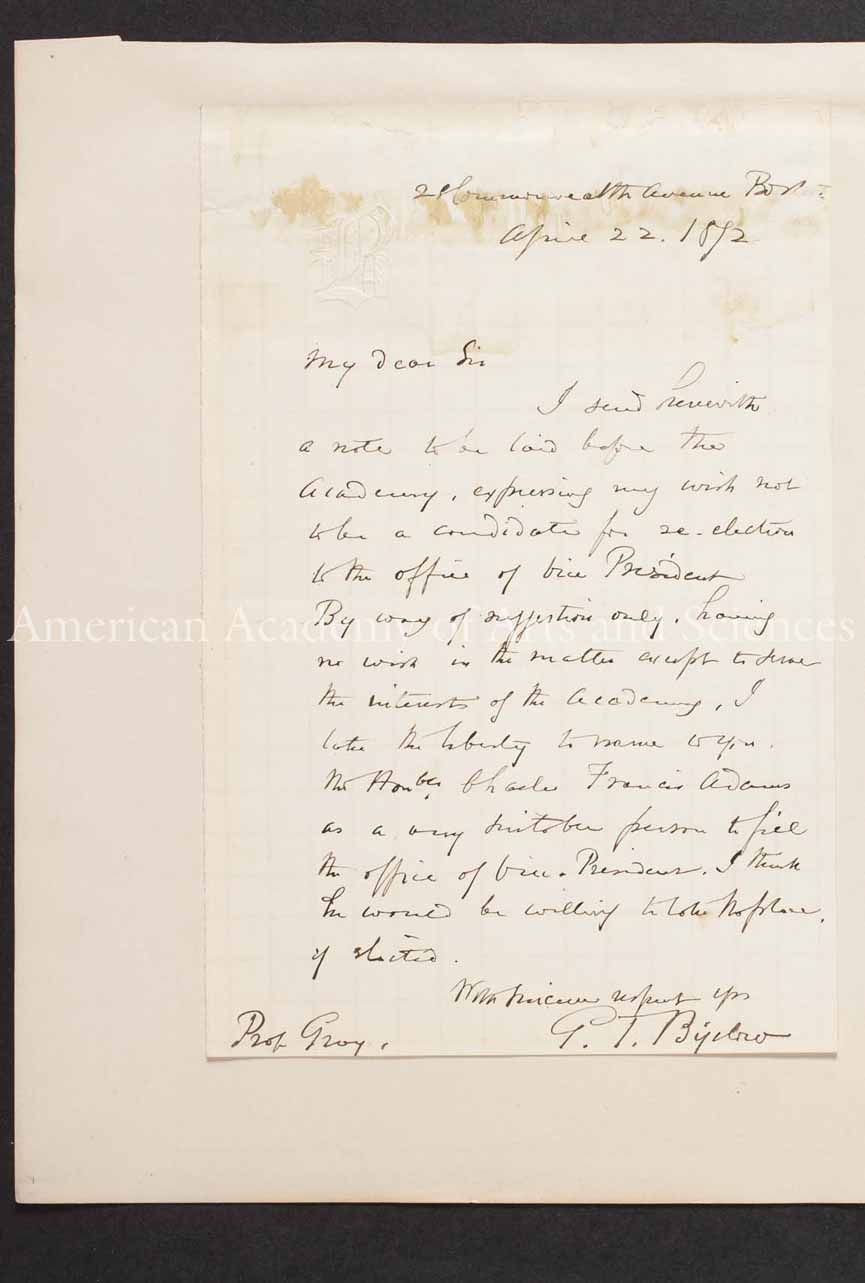 Commonwealth Avenue Bost.
April 22. 1872
B
My dear Sir
I send herewith
a note to be laid before the
Academy, expressing my wish not
to be a candidate for re-election
to the office of Vice President
By way of suggestion only, having
American Academy of Arts and Sciences
no wish in the matter except to serve
the interests of the Academy, I
take the liberty to name to you.
the Honble. Charles Francis Adams
as a very suitable person to fill
the office of Vice-President. I think
he would be willing to take the place,
if elected.
With sincere respect yrs
G. T. Bigelow
Prof. Gray.